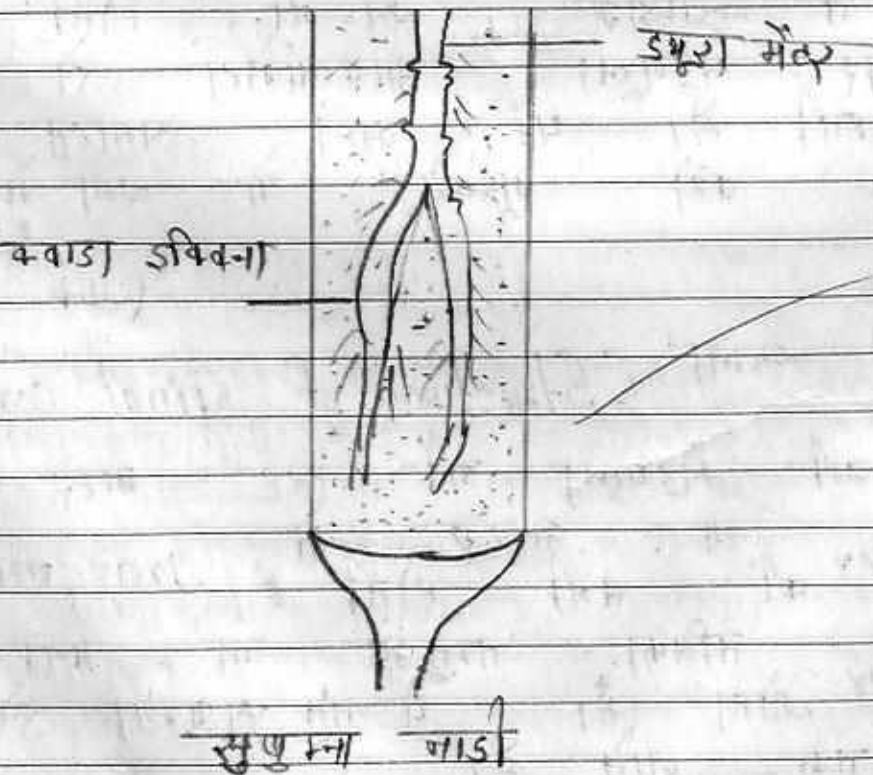 ड्यूरा मैटर
क्वाडा इक्विना
सुषुम्ना नाडी